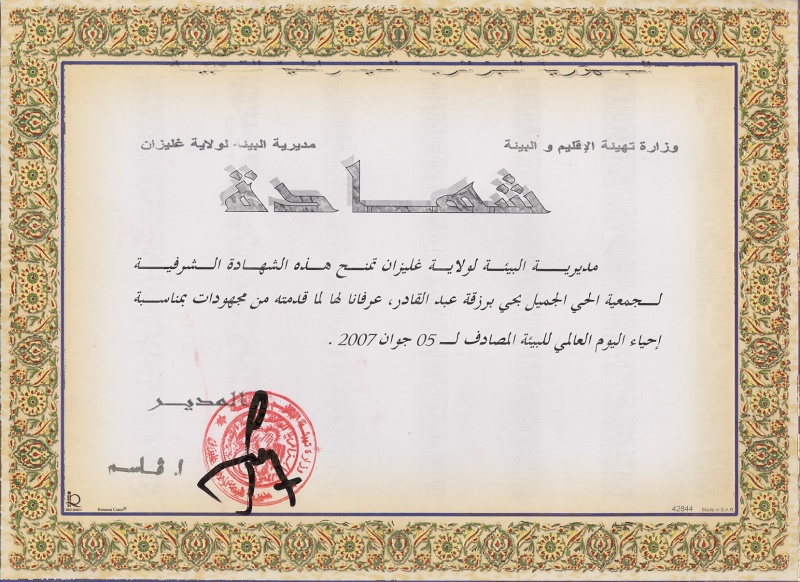 وزارة تهيئة الإقليم و البيئة
مديرية البيئة لولاية غليزان
شهادة
مديرية البيئة لولاية غليزان تمنح هذه الشهادة الشرفية
لجمعية الحي الجميل بحي برزقة عبد القادر، عرفانا لها لما قدمته من مجهودات بمناسبة
إحياء اليوم العالمي للبيئة المصادف لـ 05 جوان 2007 .
المدير
ا. قاسم
42844 Made in E.A.R